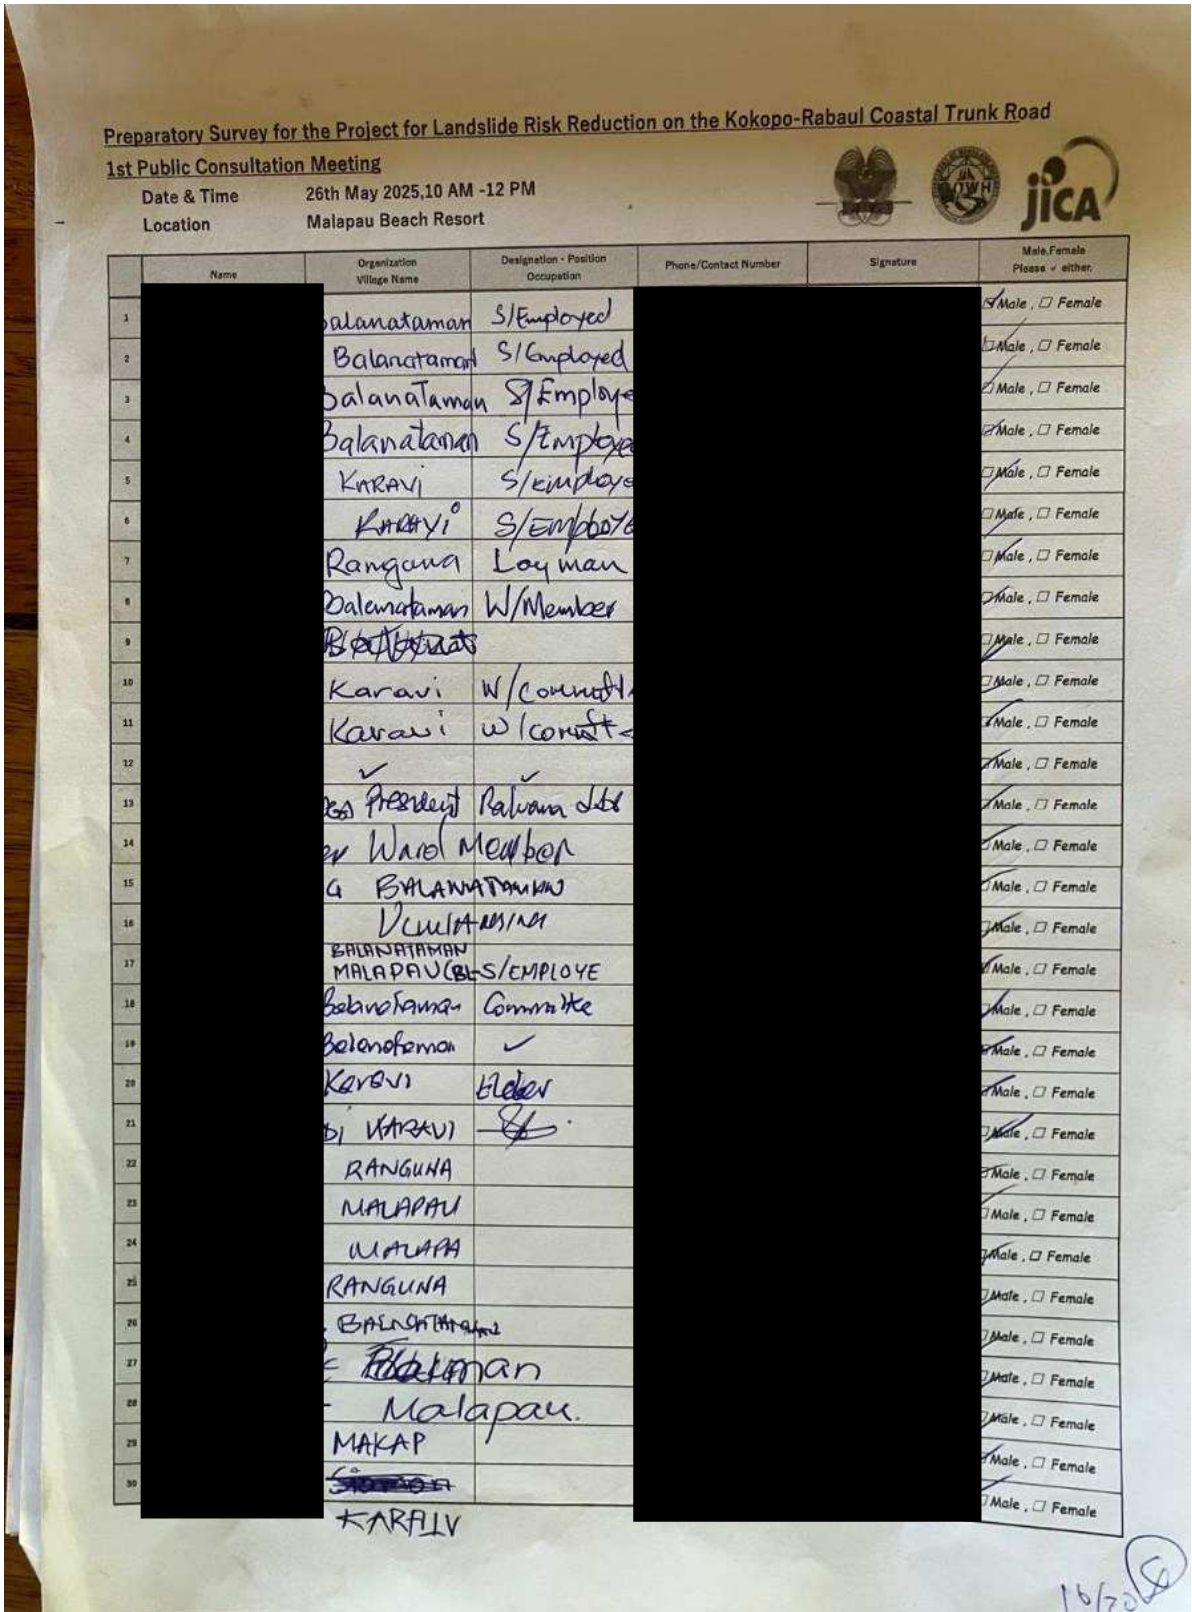 Preparatory Survey for the Project for Landslide Risk Reduction on the Kokopo-Rabaul Coastal Trunk Road
1st Public Consultation Meeting
Date & Time 26th May 2025,10 AM -12 PM
Location Malapau Beach Resort
jICA
Name Organization Village Name Designation - Position Occupation Phone/Contact Number Signature Male,Female Please ✓ either.
1 balanataman S/Employed Male, Female
2 Balanataman S/Employed Male, Female
3 balanaTaman S/Employe Male, Female
4 Balanataman S/Employe Male, Female
5 KARAVI S/employe Male, Female
6 S/Employe Male, Female
7 Lay man Male, Female
8 W/Member Male, Female
9 Male, Female
10 Karavi Male, Female
11 Karavi Male, Female
12 ✓ ✓ Male, Female
13 President Male, Female
14 Ward Member Male, Female
15 Male, Female
16 Male, Female
17 BALANATAMAN
MALAPAU S/EMPLOYE Male, Female
18 Male, Female
19 ✓ Male, Female
20 Karavi Elder Male, Female
21 KARAVI Male, Female
22 RANGUNA Male, Female
23 MALAPAU Male, Female
24 MALAPA Male, Female
25 RANGUNA Male, Female
26 Male, Female
27 Male, Female
28 Malapau. Male, Female
29 MAKAP Male, Female
30 Male, Female
KARAIV